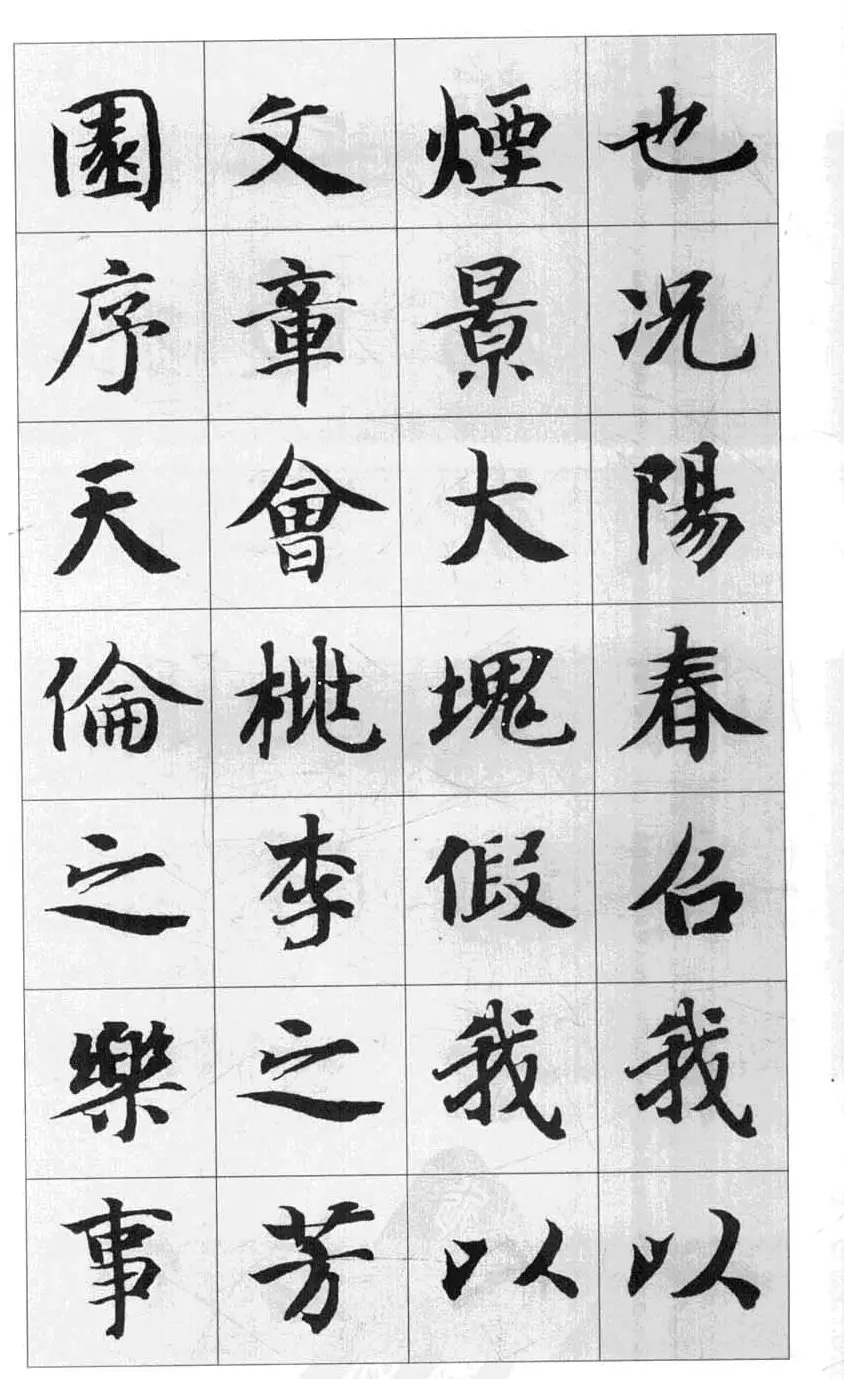 也况陽春召我以
煙景大塊假我以
文章會桃李之芳
園序天倫之樂事